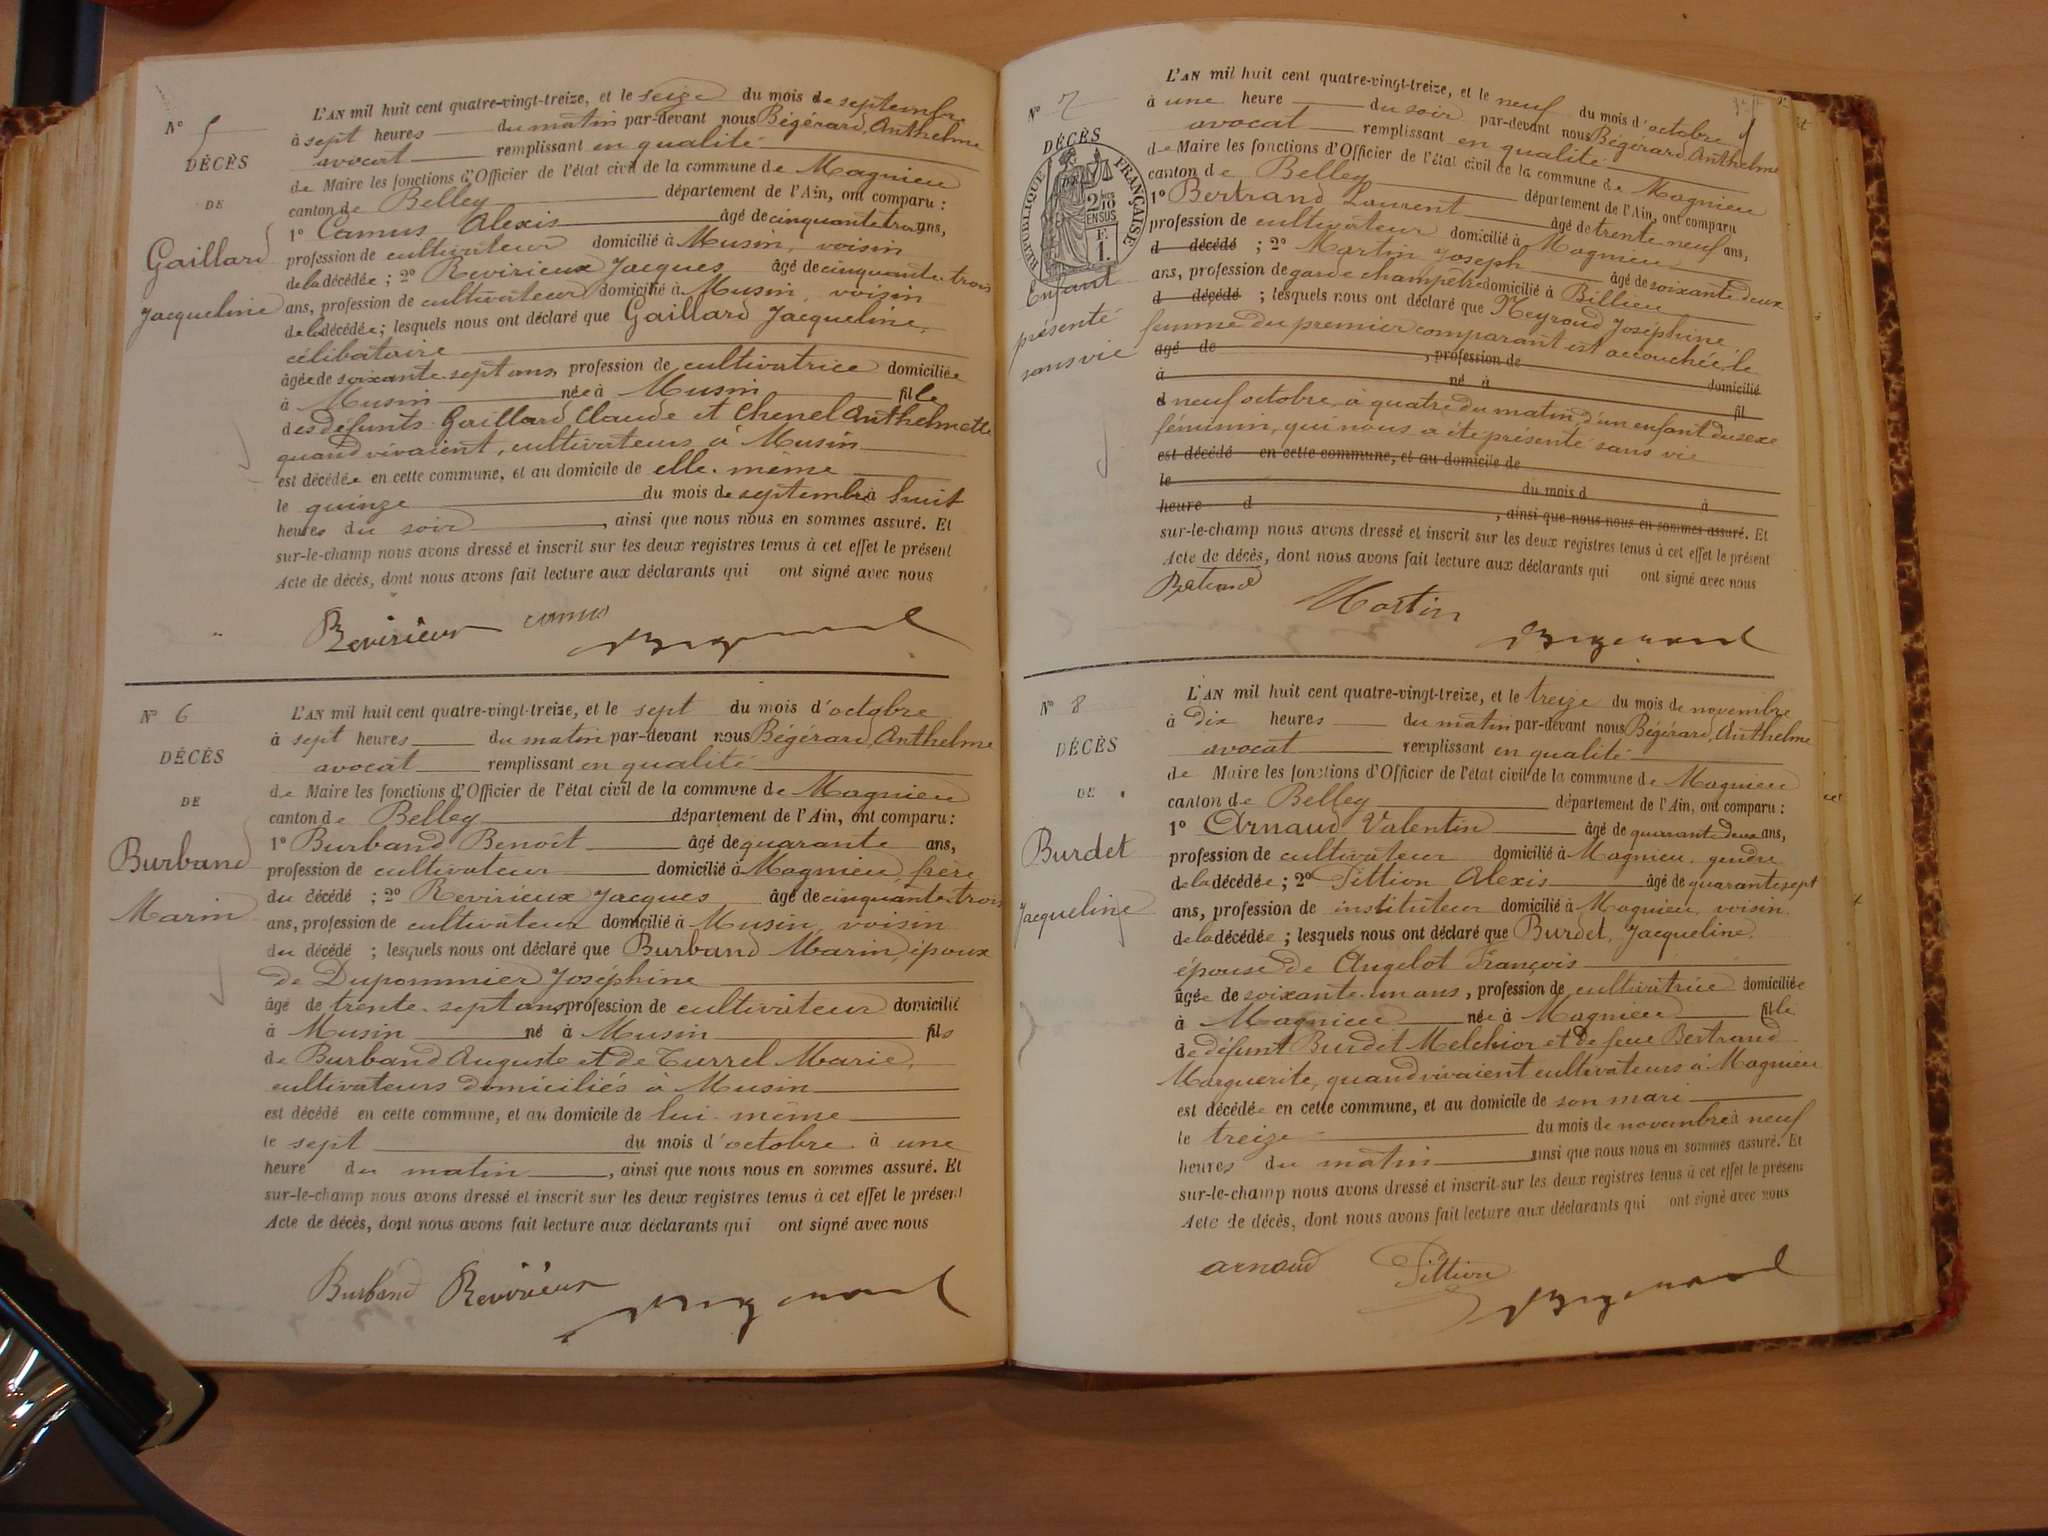 N° 5
DÉCÈS
DE
Gaillard
Jacqueline
L'AN mil huit cent quatre-vingt-treize, et le seize du mois de septembre
à sept heures du matin par-devant nous Bégérard, Anthelme
avocat remplissant en qualité
de Maire les fonctions d'Officier de l'état civil de la commune de Magnieu
canton de Belley département de l'Ain, ont comparu :
1° Camus Alexis âgé de cinquante trois ans,
profession de cultivateur domicilié à Musin, voisin
de la décédée ; 2° Revirieux Jacques âgé de cinquante-trois
ans, profession de cultivateur domicilié à Musin, voisin
de la décédée ; lesquels nous ont déclaré que Gaillard Jacqueline,
célibataire
âgée de soixante-sept ans, profession de cultivatrice domiciliée
à Musin née à Musin fille
des défunts Gaillard Claude et Chenel Anthelmette
quand vivaient, cultivateurs à Musin
est décédée en cette commune, et au domicile de elle-même
le quinze du mois de septembre à huit
heures du soir, ainsi que nous nous en sommes assuré. Et
sur-le-champ nous avons dressé et inscrit sur les deux registres tenus à cet effet le présent
Acte de décès, dont nous avons fait lecture aux déclarants qui ont signé avec nous
Revirieux camus Begerard
N° 6
DÉCÈS
DE
Burband
Marin
L'AN mil huit cent quatre-vingt-treize, et le sept du mois d'octobre
à sept heures du matin par-devant nous Bégérard, Anthelme
avocat remplissant en qualité
de Maire les fonctions d'Officier de l'état civil de la commune de Magnieu
canton de Belley département de l'Ain, ont comparu :
1° Burband Benoît âgé de quarante ans,
profession de cultivateur domicilié à Magnieu, frère
du décédé ; 2° Revirieux Jacques âgé de cinquante-trois
ans, profession de cultivateur domicilié à Musin, voisin
du décédé ; lesquels nous ont déclaré que Burband Marin, époux
de Dupommier Joséphine
âgé de trente-sept ans, profession de cultivateur domicilié
à Musin né à Musin fils
de Burband Auguste et de Turrel Marie,
cultivateurs domiciliés à Musin
est décédé en cette commune, et au domicile de lui-même
le sept du mois d'octobre à une
heure du matin, ainsi que nous nous en sommes assuré. Et
sur-le-champ nous avons dressé et inscrit sur les deux registres tenus à cet effet le présent
Acte de décès, dont nous avons fait lecture aux déclarants qui ont signé avec nous
Burband Revirieux Begerard
N° 7
DÉCÈS
RÉPUBLIQUE FRANÇAISE
2/10 EN SUS
F. 1.
Enfant
présenté
sans vie
L'AN mil huit cent quatre-vingt-treize, et le neuf du mois d'octobre
à une heure du soir par-devant nous Bégérard, Anthelme
avocat remplissant en qualité
de Maire les fonctions d'Officier de l'état civil de la commune de Magnieu
canton de Belley département de l'Ain, ont comparu
1° Bertrand Laurent âgé de trente-neuf ans,
profession de cultivateur domicilié à Magnieu
d décédé ; 2° Martin Joseph âgé de soixante-deux
ans, profession de garde champêtre domicilié à Billieu
d décédé ; lesquels nous ont déclaré que Neyroud Joséphine
femme du premier comparant est accouchée, le
âgé de , profession de domicilié
à né à fil
d neuf octobre, à quatre du matin, d'un enfant du sexe
féminin, qui nous a été présenté sans vie
est décédé en cette commune, et au domicile de
le du mois d à
heure d , ainsi que nous nous en sommes assuré. Et
sur-le-champ nous avons dressé et inscrit sur les deux registres tenus à cet effet le présent
Acte de décès, dont nous avons fait lecture aux déclarants qui ont signé avec nous
Bertrand Martin Begerard
N° 8
DÉCÈS
DE
Burdet
Jacqueline
L'AN mil huit cent quatre-vingt-treize, et le treize du mois de novembre
à dix heures du matin par-devant nous Bégérard, Anthelme
avocat remplissant en qualité
de Maire les fonctions d'Officier de l'état civil de la commune de Magnieu
canton de Belley département de l'Ain, ont comparu :
1° Arnaud Valentin âgé de quarante deux ans,
profession de cultivateur domicilié à Magnieu, gendre
de la décédée ; 2° Pittion Alexis âgé de quarante sept
ans, profession de instituteur domicilié à Magnieu, voisin
de la décédée ; lesquels nous ont déclaré que Burdet, Jacqueline,
épouse de Angelot François
âgée de soixante-un ans, profession de cultivatrice domiciliée
à Magnieu née à Magnieu fille
de défunt Burdet Melchior et de feue Bertrand
Marguerite, quand vivaient cultivateurs à Magnieu
est décédée en cette commune, et au domicile de son mari
le treize du mois de novembre à neuf
heures du matin ainsi que nous nous en sommes assuré. Et
sur-le-champ nous avons dressé et inscrit sur les deux registres tenus à cet effet le présent
Acte de décès, dont nous avons fait lecture aux déclarants qui ont signé avec nous
arnaud Pittion Begerard